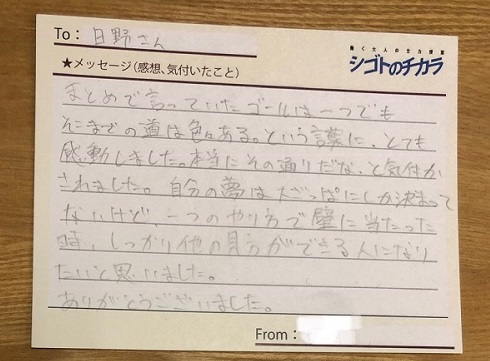 To: 日野さん
働く大人の全力授業
シゴトのチカラ
★メッセージ(感想、気付いたこと)
まとめで言っていたゴールは一つでも
そこまでの道は色々ある。という言葉に、とても
感動しました。本当にその通りだな、と気付か
されました。自分の夢は大ざっぱにしか決まって
ないけど、一つのやり方で壁に当たった
時、しっかり他の見方ができる人になり
たいと思いました。
ありがとうございました。
From: